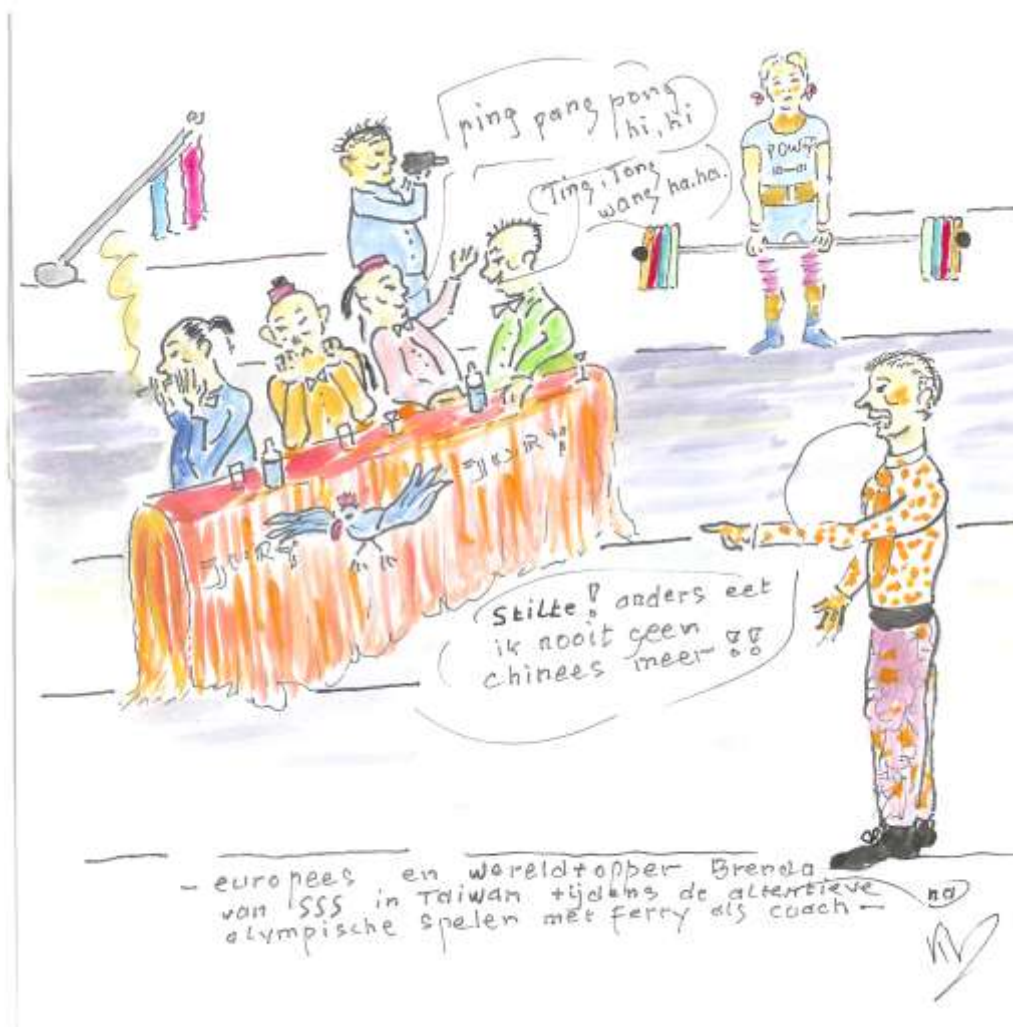 ping pang pong
hi, hi
Ting, Tong
wang ha.ha.
POWER
Stilte! anders eet
ik nooit geen
chinees meer !!
- europees en wereldtopper Brenda
van SSS in Taiwan tijdens de altertieve
na
olympische spelen met ferry als coach -